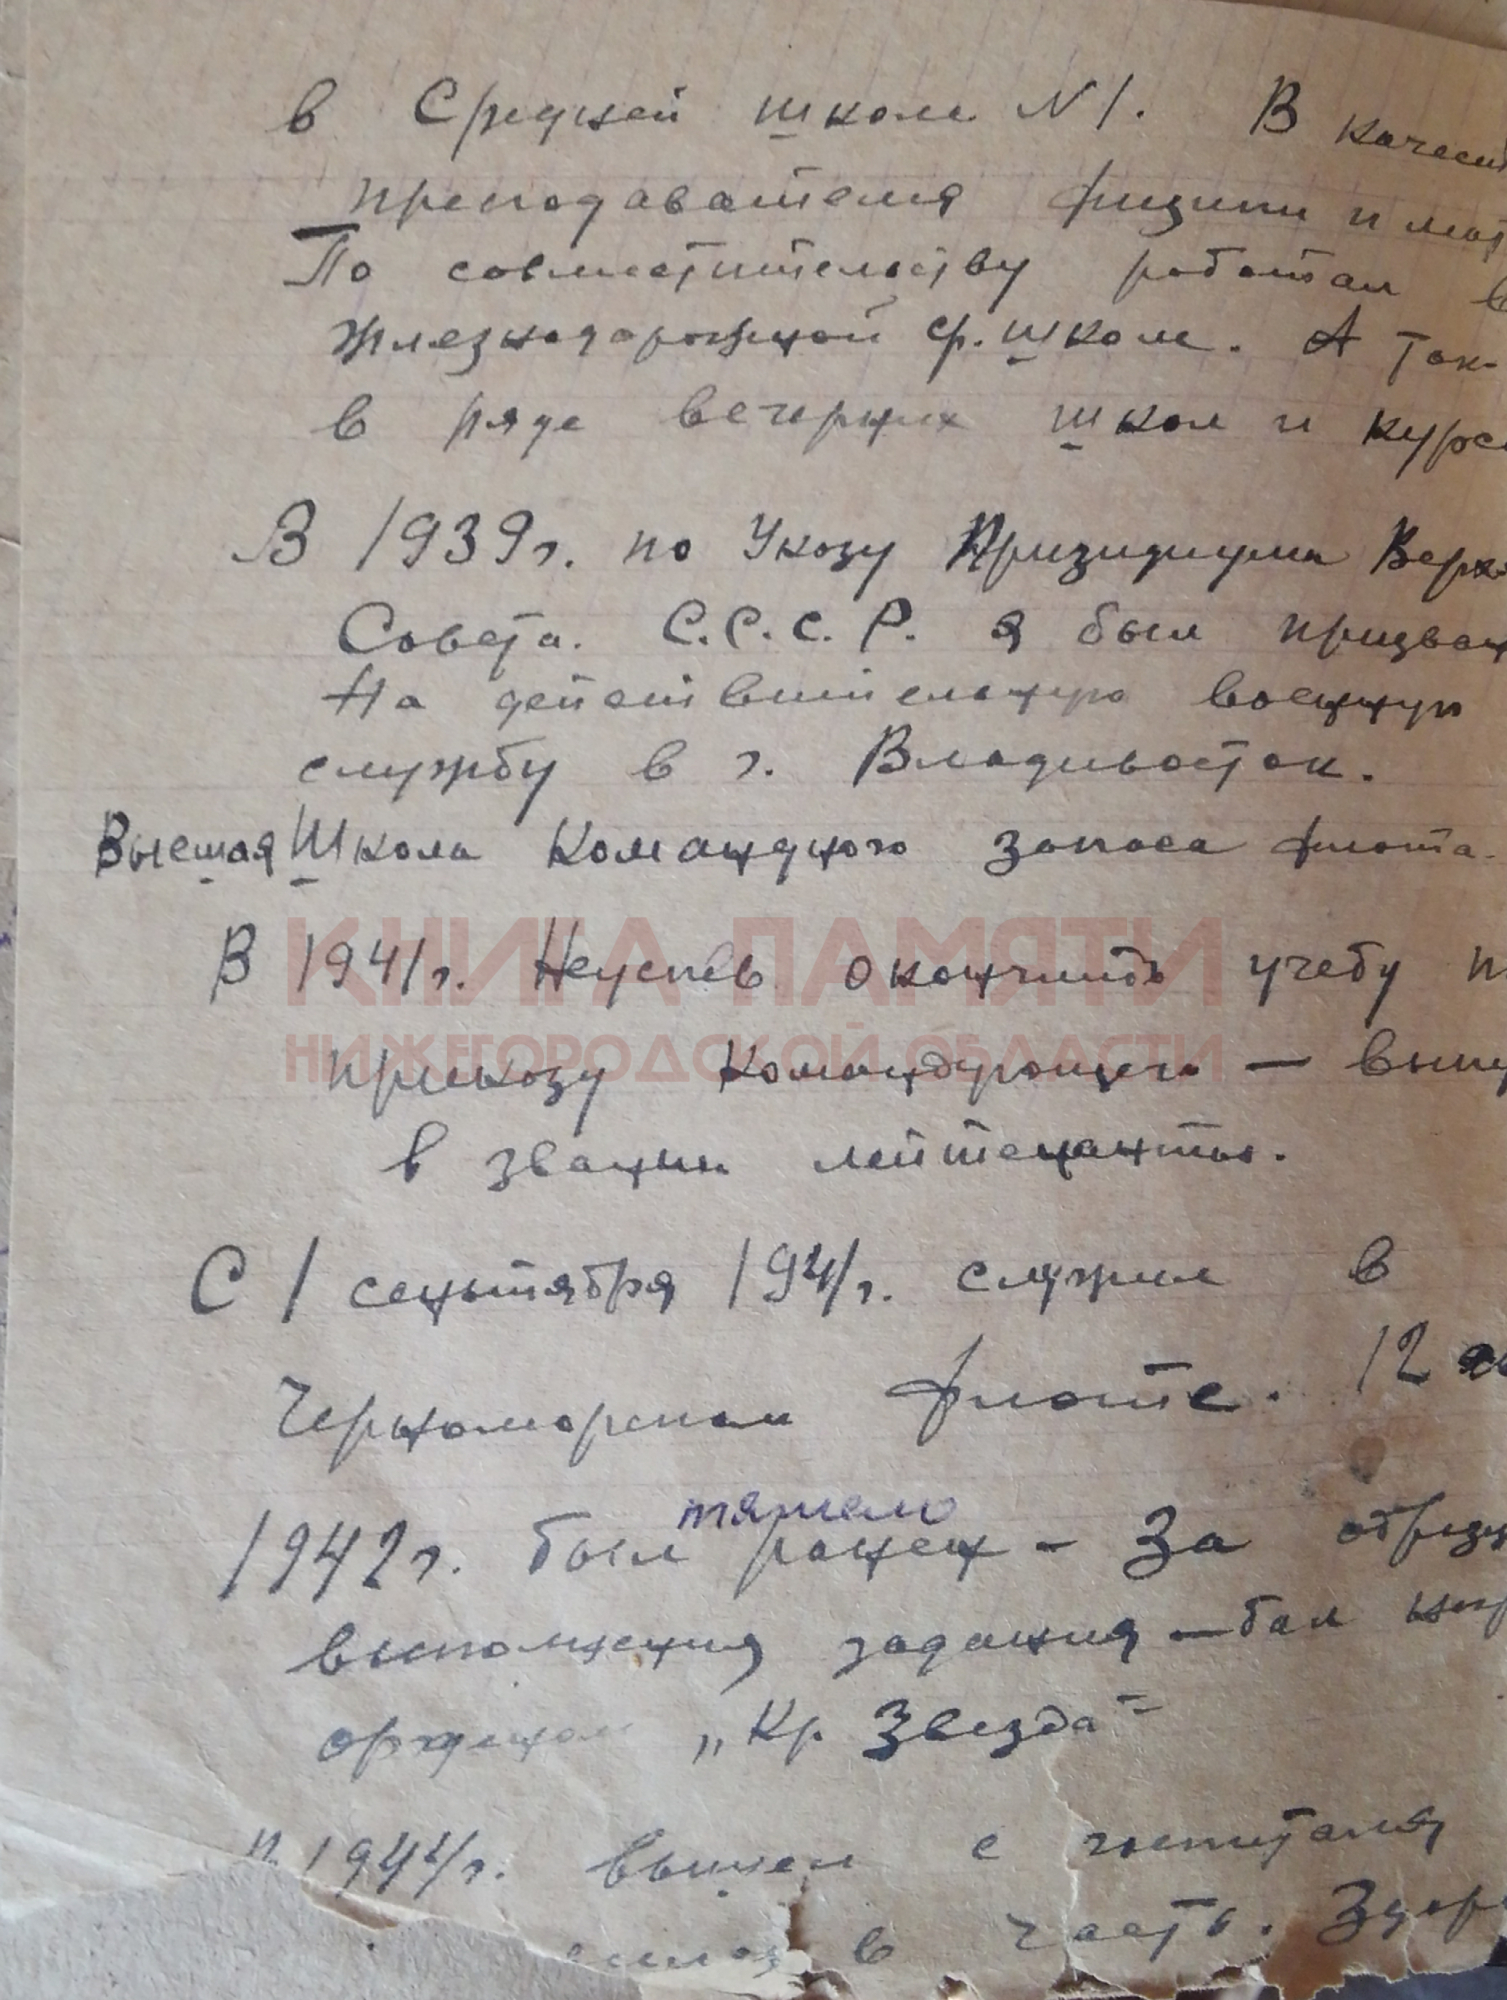 в Средней школе N1. В качест
преподавателя физики и мат
По совместительству работал в
Железнодорожной ср. школе. А так-
в ряде вечерних школ и курсо
В 1939г. по Указу Призидиума Верх.
Совета. С.С.С.Р. я был призван
На действительную военную
службу в г. Владивосток.
Высшая Школа Командного запаса флота.
КНИГА ПАМЯТИ
В 1941г. Неуспев окончить учебу п
НИЖЕГОРОДСКОЙ ОБЛАСТИ
приказу Командующего – выпу
в звании лейтенанты.
С 1 сентября 1941г. служил в
Черноморском флоте. 12
тяжело
1942г. был ранен - За образц
выполнения задания – был нагр
орденом „Кр. Звезда"
1944г. вышел с госпиталя
в часть. Здор